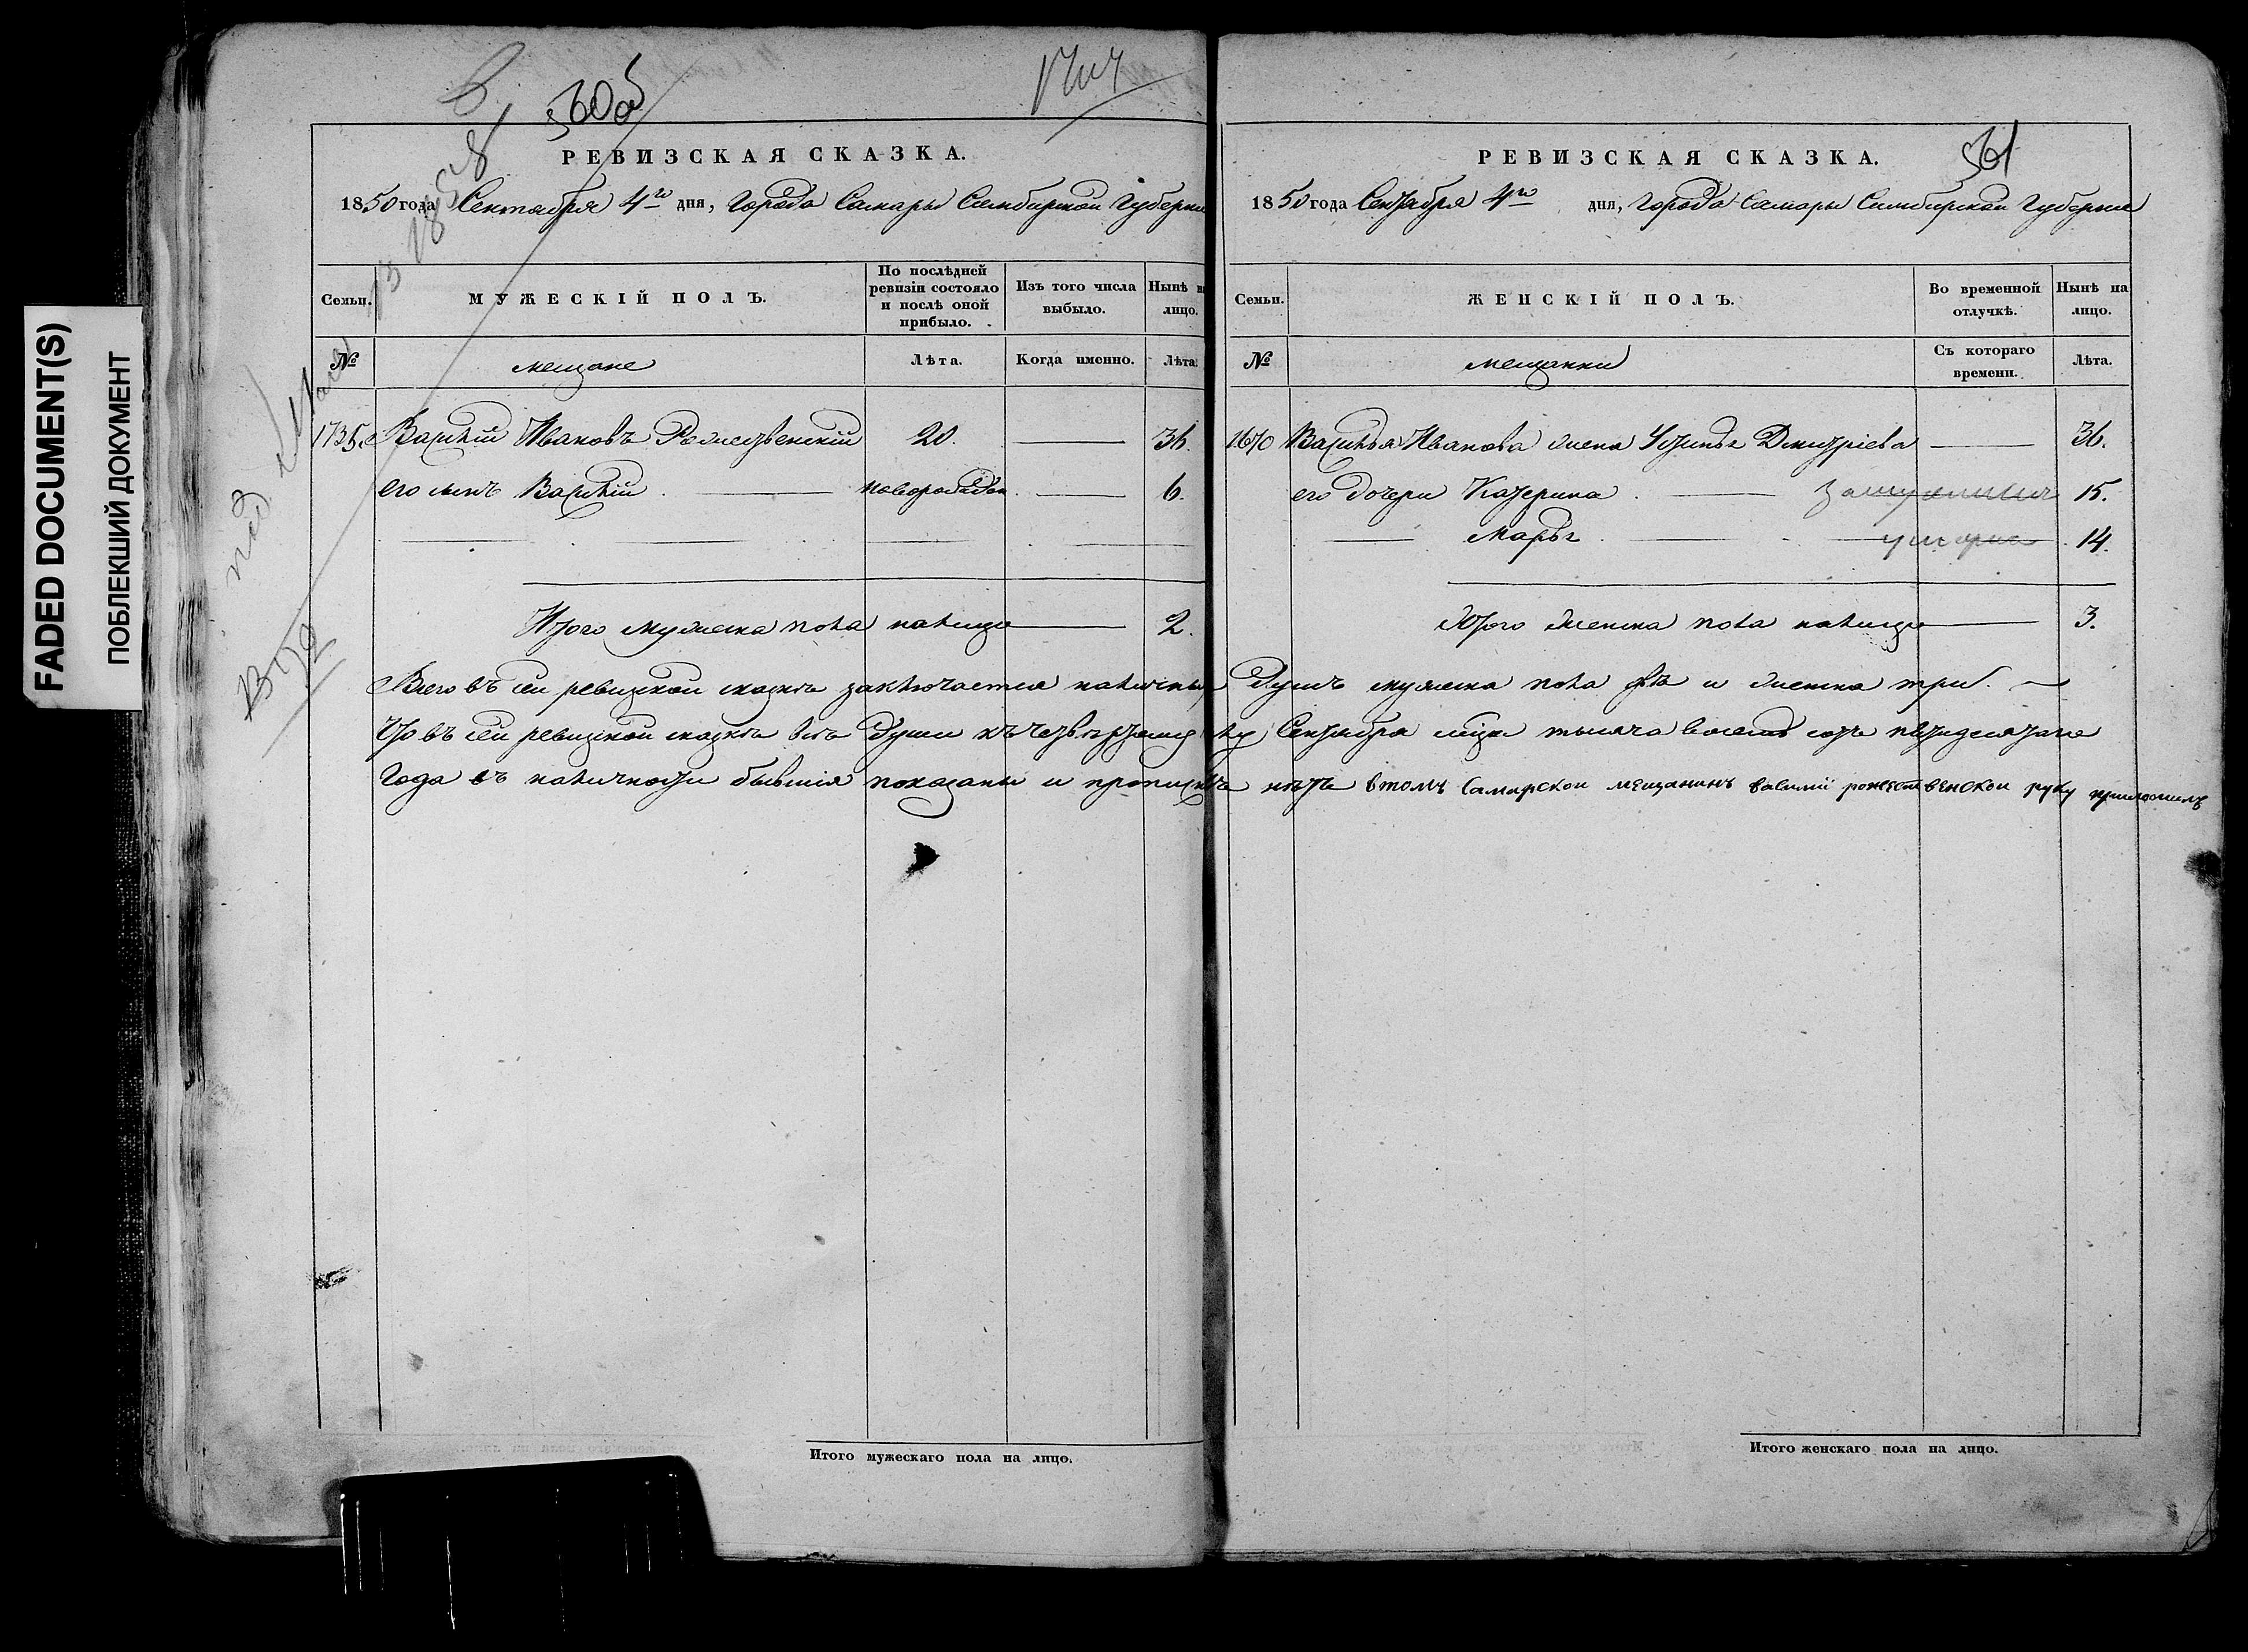 FADED DOCUMENT(S)
ПОБЛЕКШИЙ ДОКУМЕНТ
560 об
РЕВИЗСКАЯ СКАЗКА.
1850 года Сентября 4го дня, Города Самары Симбирской Губернии
Семьи.
МУЖЕСКІЙ ПОЛЪ.
По послѣдней ревизіи состояло и послѣ оной прибыло.
Изъ того числа выбыло.
Нынѣ на лицо.
№
мещане
Лѣта.
Когда именно.
Лѣта.
1735. Василій Ивановъ Рожественскій 20. 36.
его сынъ Василій новорожден. 6.
Итого мужеска пола налицо 2.
Итого мужескаго пола на лицо.
561
РЕВИЗСКАЯ СКАЗКА.
1850 года Сентября 4го дня, Города Самары Симбирской Губернии
Семьи.
ЖЕНСКІЙ ПОЛЪ.
Во временной отлучкѣ.
Нынѣ на лицо.
№
мещанки
Съ котораго времени.
Лѣта.
1670 Василья Иванова жена Устинья Дмитріева 36.
его дочери Катерина замужемъ 15.
Марья умерла 14.
Итого женска пола налицо 3.
Всего въ сей ревизской сказкѣ заключается наличныхъ душъ мужеска пола двѣ и женска три.
Что въ сей ревизской сказкѣ всѣ души къ четвертому числу Сентября мѣсяца тысяча восемь сотъ пятидесятаго
года въ наличности бывшія показаны и прописныхъ нѣтъ втомъ самарскои мещанинъ василиі рожественскои руку приложилъ
Итого женскаго пола на лицо.